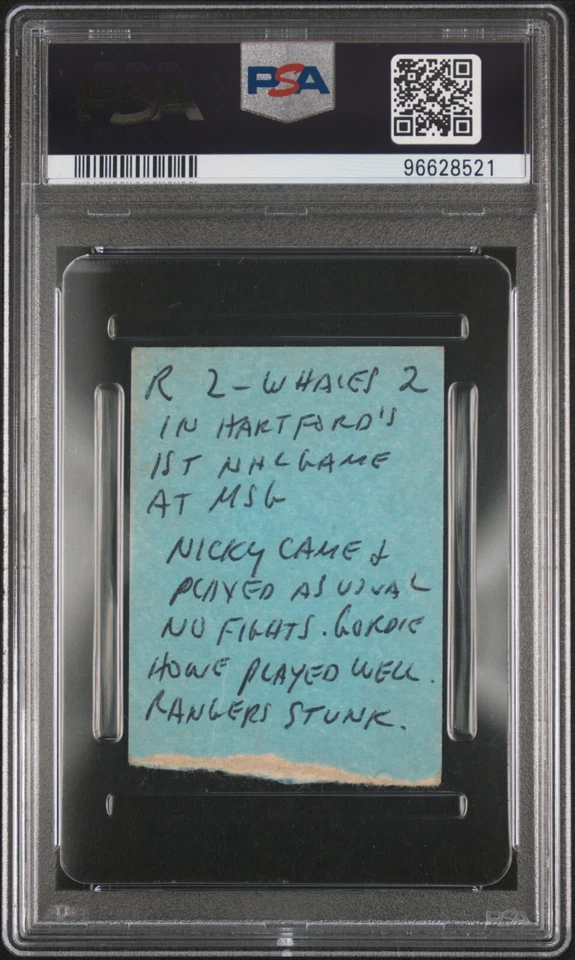 PSA
PSA
96628521
R 2-WHALES 2
IN HARTFORD'S
1ST NHL GAME
AT MSG
NICKY CAME &
PLAYED AS USUAL
NO FIGHTS. GORDIE
HOWE PLAYED WELL.
RANGERS STUNK.
PSA